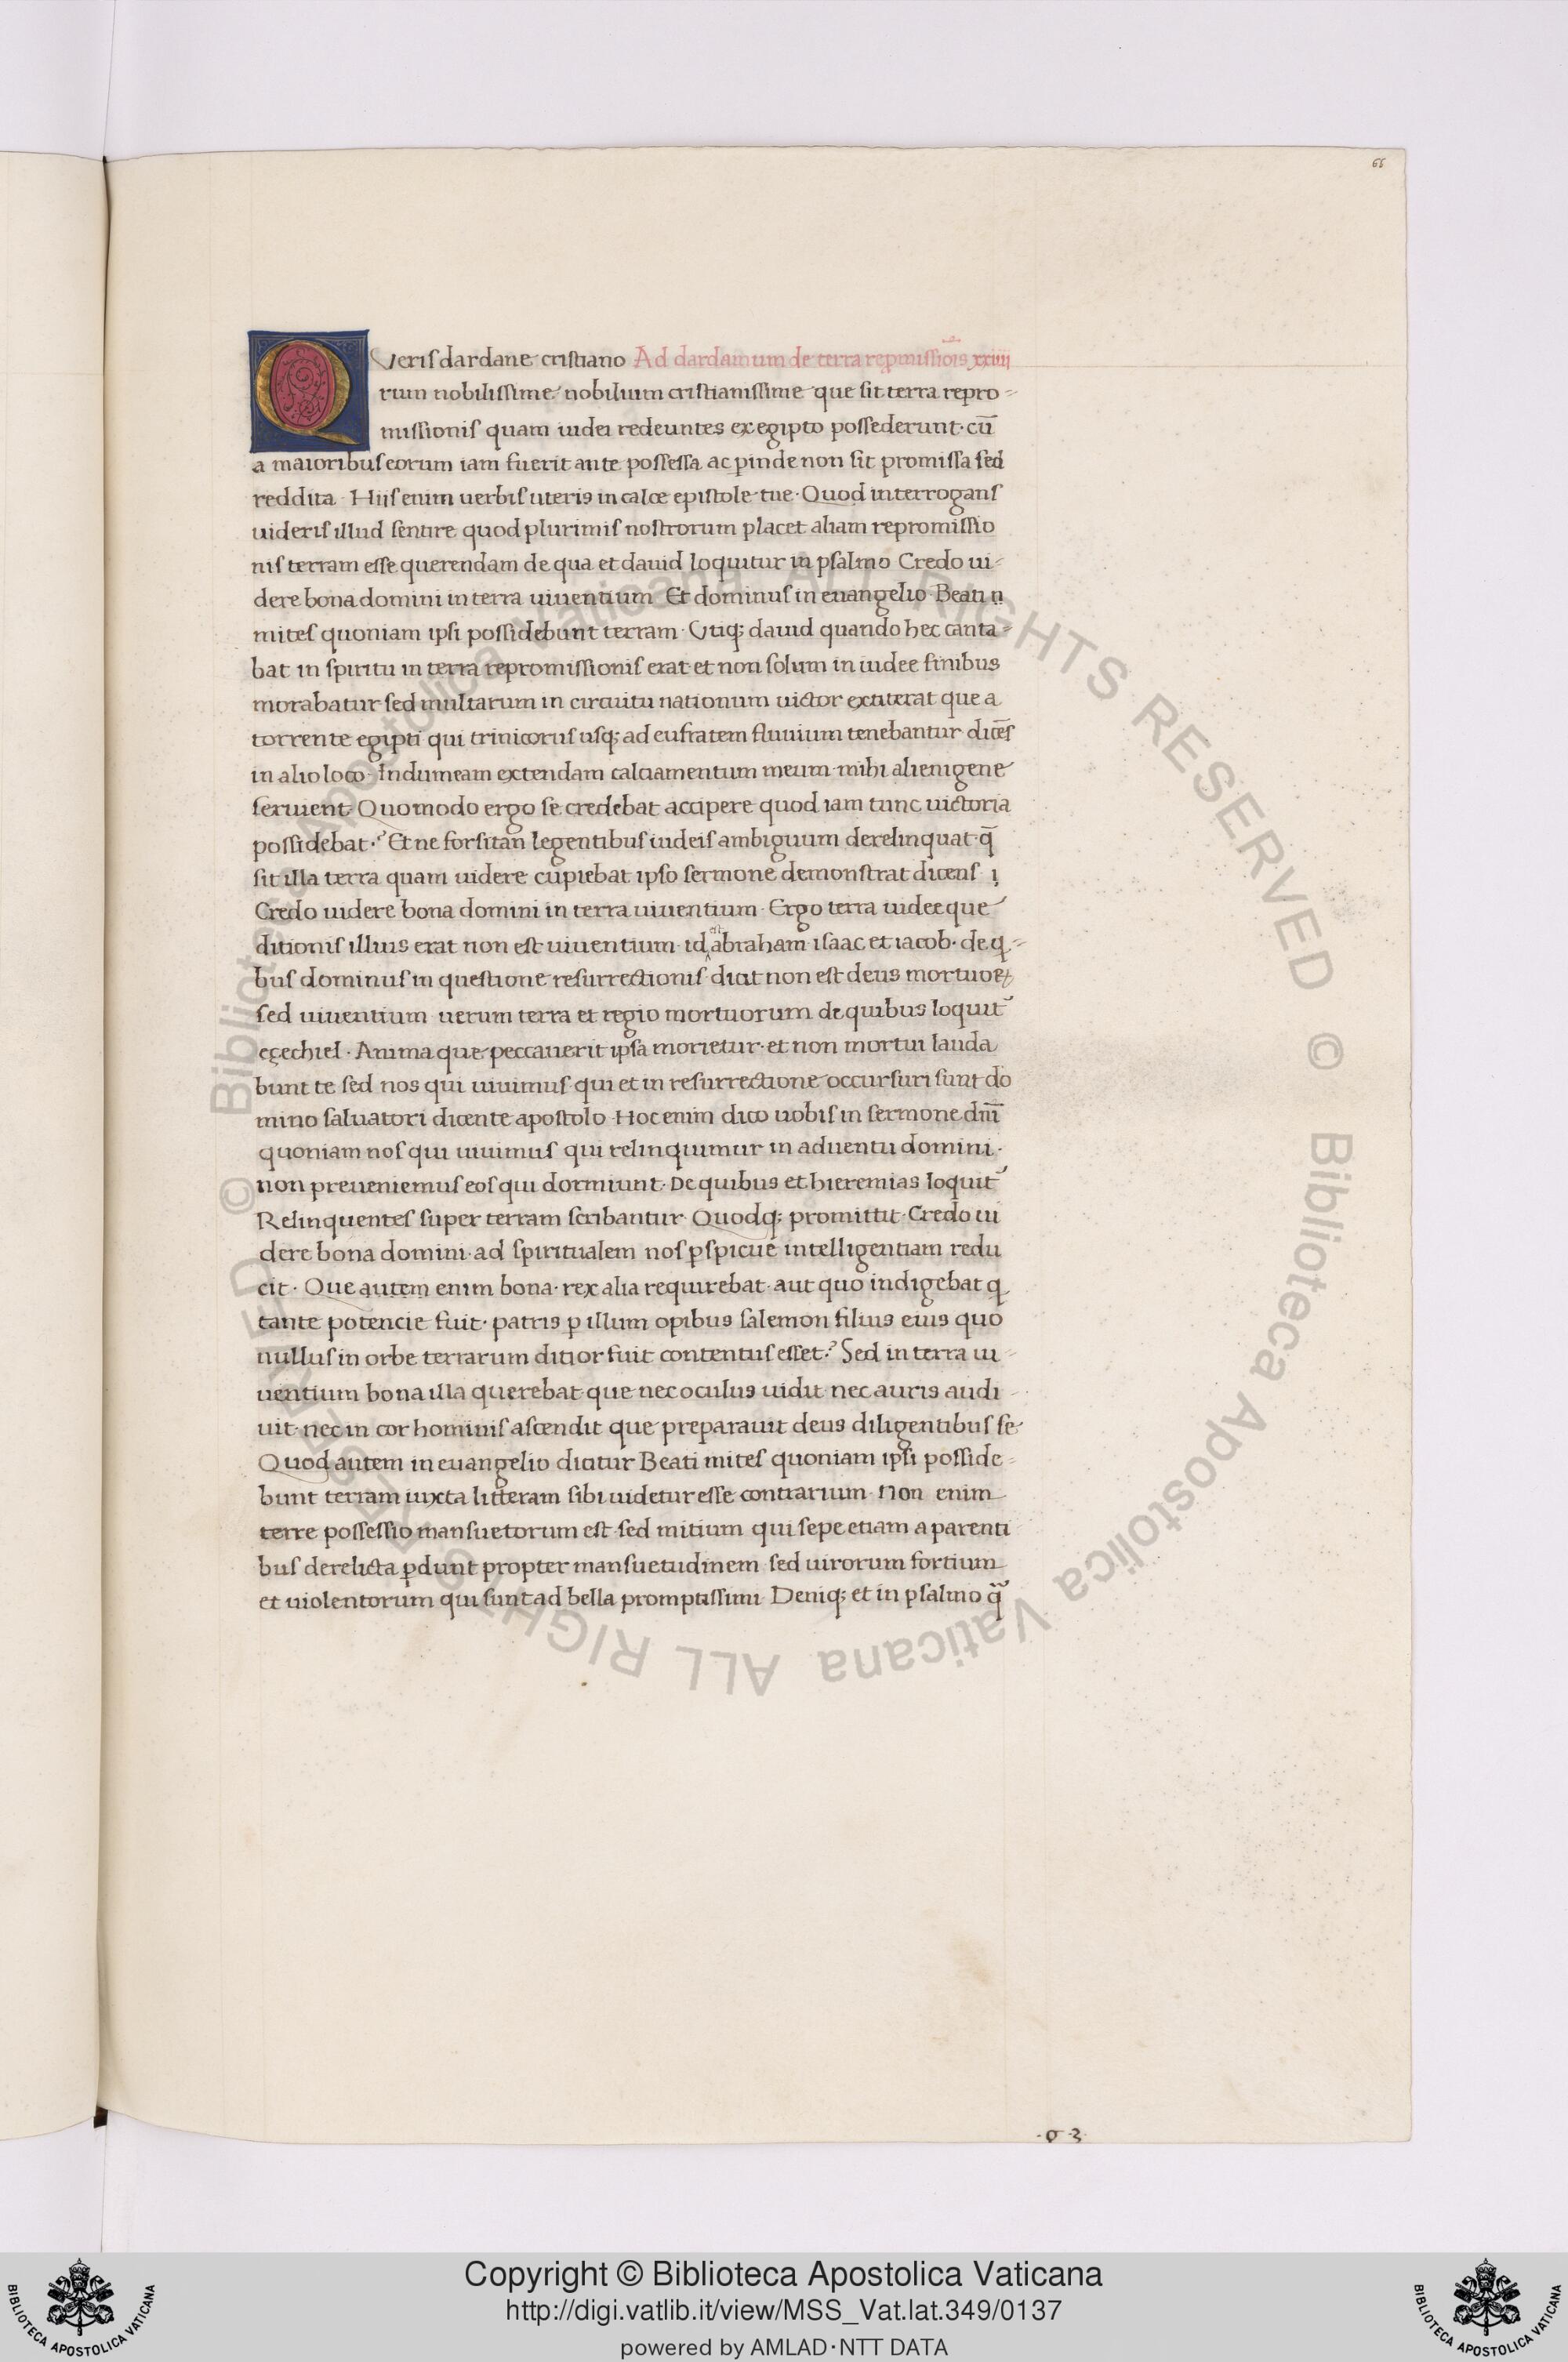 66
Queris dardane cristiano Ad dardamum de terra reꝓmissiōis xxiiii
rum nobilissime nobilium cristianissime que sit terra repro-
missionis quam iudei redeuntes ex egipto possederunt· cū
a maioribus eorum iam fuerit ante possessa ac ꝑinde non sit promissa sed
reddita· Hiis enim uerbis uteris in calce epistole tue· Quod interrogans
uideris illud sentire quod plurimis nostrorum placet aliam repromissio
nis terram esse querendam de qua et dauid loquitur in psalmo Credo ui-
dere bona domini in terra uiuentium Et dominus in euangelio· Beati
mites quoniam ipsi possidebunt terram· Utiq; dauid quando hec canta-
bat in spiritu in terra repromissionis erat et non solum in iudee finibus
morabatur sed multarum in circuitu nationum uictor extiterat que a
torrente egipti qui trinicorus usq; ad eufratem fluuium tenebantur dicēs
in alio loco· Indumeam extendam calciamentum meum mihi alienigene
seruient Quomodo ergo se credebat accipere quod iam tunc uictoria
possidebat·? Et ne forsitan legentibus iudeis ambiguum derelinquat· q̄
sit illa terra quam uidere cupiebat ipso sermone demonstrat dicens
Credo uidere bona domini in terra uiuentium· Ergo terra iudee que
ditionis illius erat non est uiuentium· id abraham· isaac et iacob· de q-
bus dominus in questione resurrectionis· dicit non est deus mortuoꝝ
sed uiuentium uerum terra et regio mortuorum de quibus loquit᷒
eçechiel· Anima que peccauerit ipsa morietur· et non mortui lauda
bunt te sed nos qui uiuimus qui et in resurrectione occursuri sunt do
mino saluatori dicente apostolo· Hoc enim dico uobis in sermone dn̄i
quoniam nos qui uiuimus qui relinquimur in aduentu domini·
non preueniemus eos qui dormiunt· De quibus et hieremias loquit᷒
Relinquentes super terram scribantur· Quodq; promittit· Credo ui
dere bona domini· ad spiritualem nos ꝑspicue intelligentiam redu
cit· Que autem enim bona· rex alia requirebat· aut quo indigebat q
tante potencie fuit· patris ꝑ illum opibus salemon filius eius quo
nullus in orbe terrarum ditior fuit contentus esset·? Sed in terra ui-
uentium bona illa querebat que nec oculus uidit nec auris audi-
uit· nec in cor hominis ascendit que preparauit deus diligentibus se
Quod autem in euangelio dicitur Beati mites quoniam ipsi posside-
bunt terram iuxta litteram sibi uidetur esse contrarium· Non enim
terre possessio mansuetorum est sed mitium qui sepe etiam a parenti
bus derelicta ꝑdunt propter mansuetudinem sed uirorum fortium
et uiolentorum qui sunt ad bella promptissimi Deniq; et in psalmo
© Biblioteca Apostolica Vaticana ALL RIGHTS RESERVED © Biblioteca Apostolica Vaticana ALL RIGHTS RESERVED
Copyright © Biblioteca Apostolica Vaticana
http://digi.vatlib.it/view/MSS_Vat.lat.349/0137
powered by AMLAD·NTT DATA
BIBLIOTECA APOSTOLICA VATICANA
BIBLIOTECA APOSTOLICA VATICANA